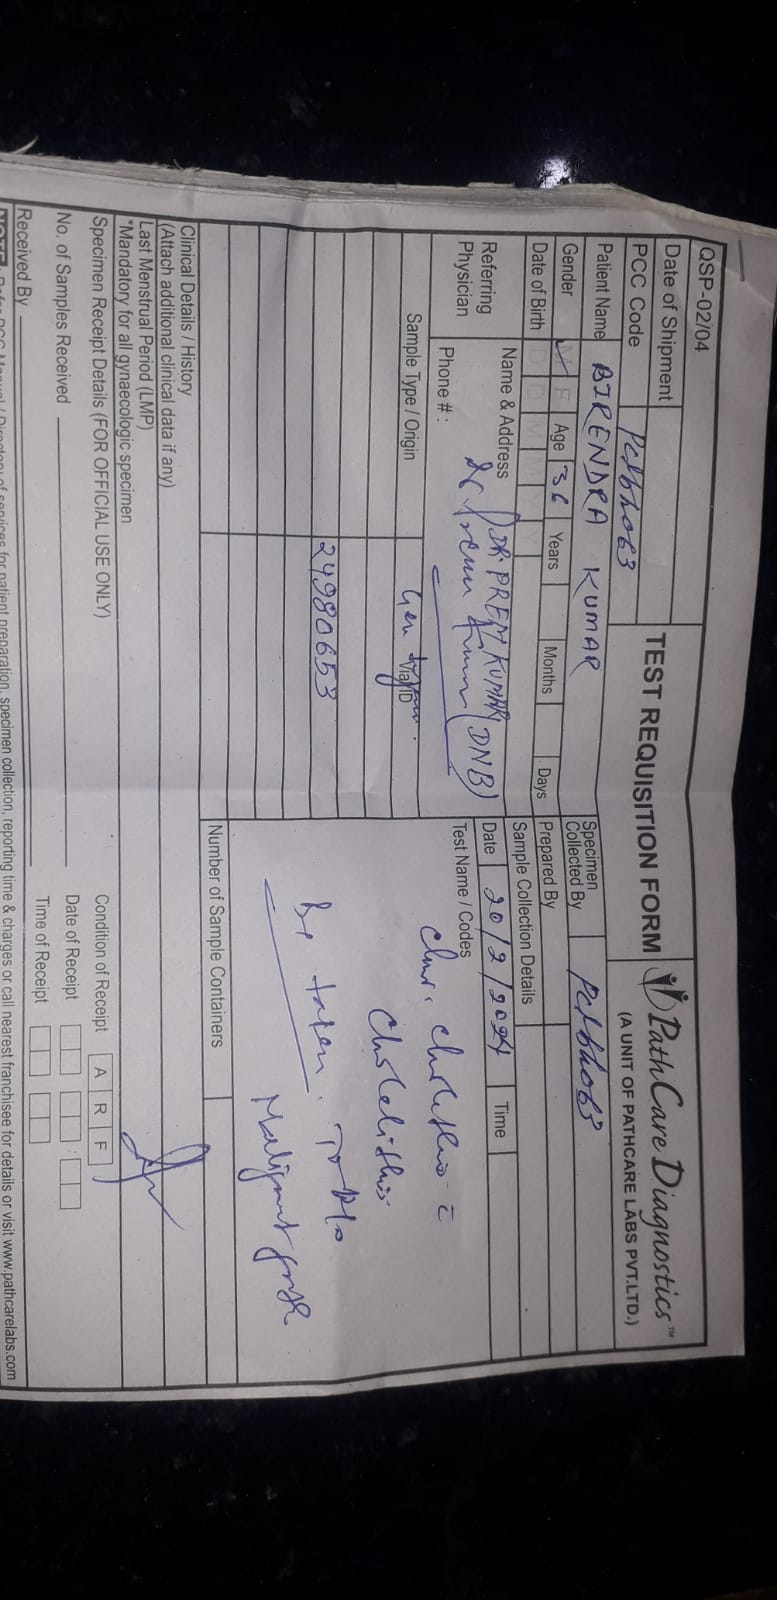 QSP-02/04
TEST REQUISITION FORM
PathCare Diagnostics™
(A UNIT OF PATHCARE LABS PVT.LTD.)
Date of Shipment
PCC Code
Patient Name BIRENDRA KUMAR
Gender M F Age 36 Years Months Days
Date of Birth D D M M Y Y
Specimen Collected By
Prepared By
Sample Collection Details
Date 20/2/2024 Time
Referring Physician
Name & Address DR. PREM KUMAR
Dr Prem Kumar (DNB)
Phone # :
Test Name / Codes
Sample Type / Origin
Vial ID
24980653
Cholelithis
Bx taken. To
Malignant
Number of Sample Containers
Clinical Details / History
(Attach additional clinical data if any)
Last Menstrual Period (LMP)
*Mandatory for all gynaecologic specimen
Specimen Receipt Details (FOR OFFICIAL USE ONLY)
Condition of Receipt A R F
No. of Samples Received
Date of Receipt
Received By
Time of Receipt
patient preparation, specimen collection, reporting time & charges or call nearest franchisee for details or visit www.pathcarelabs.com